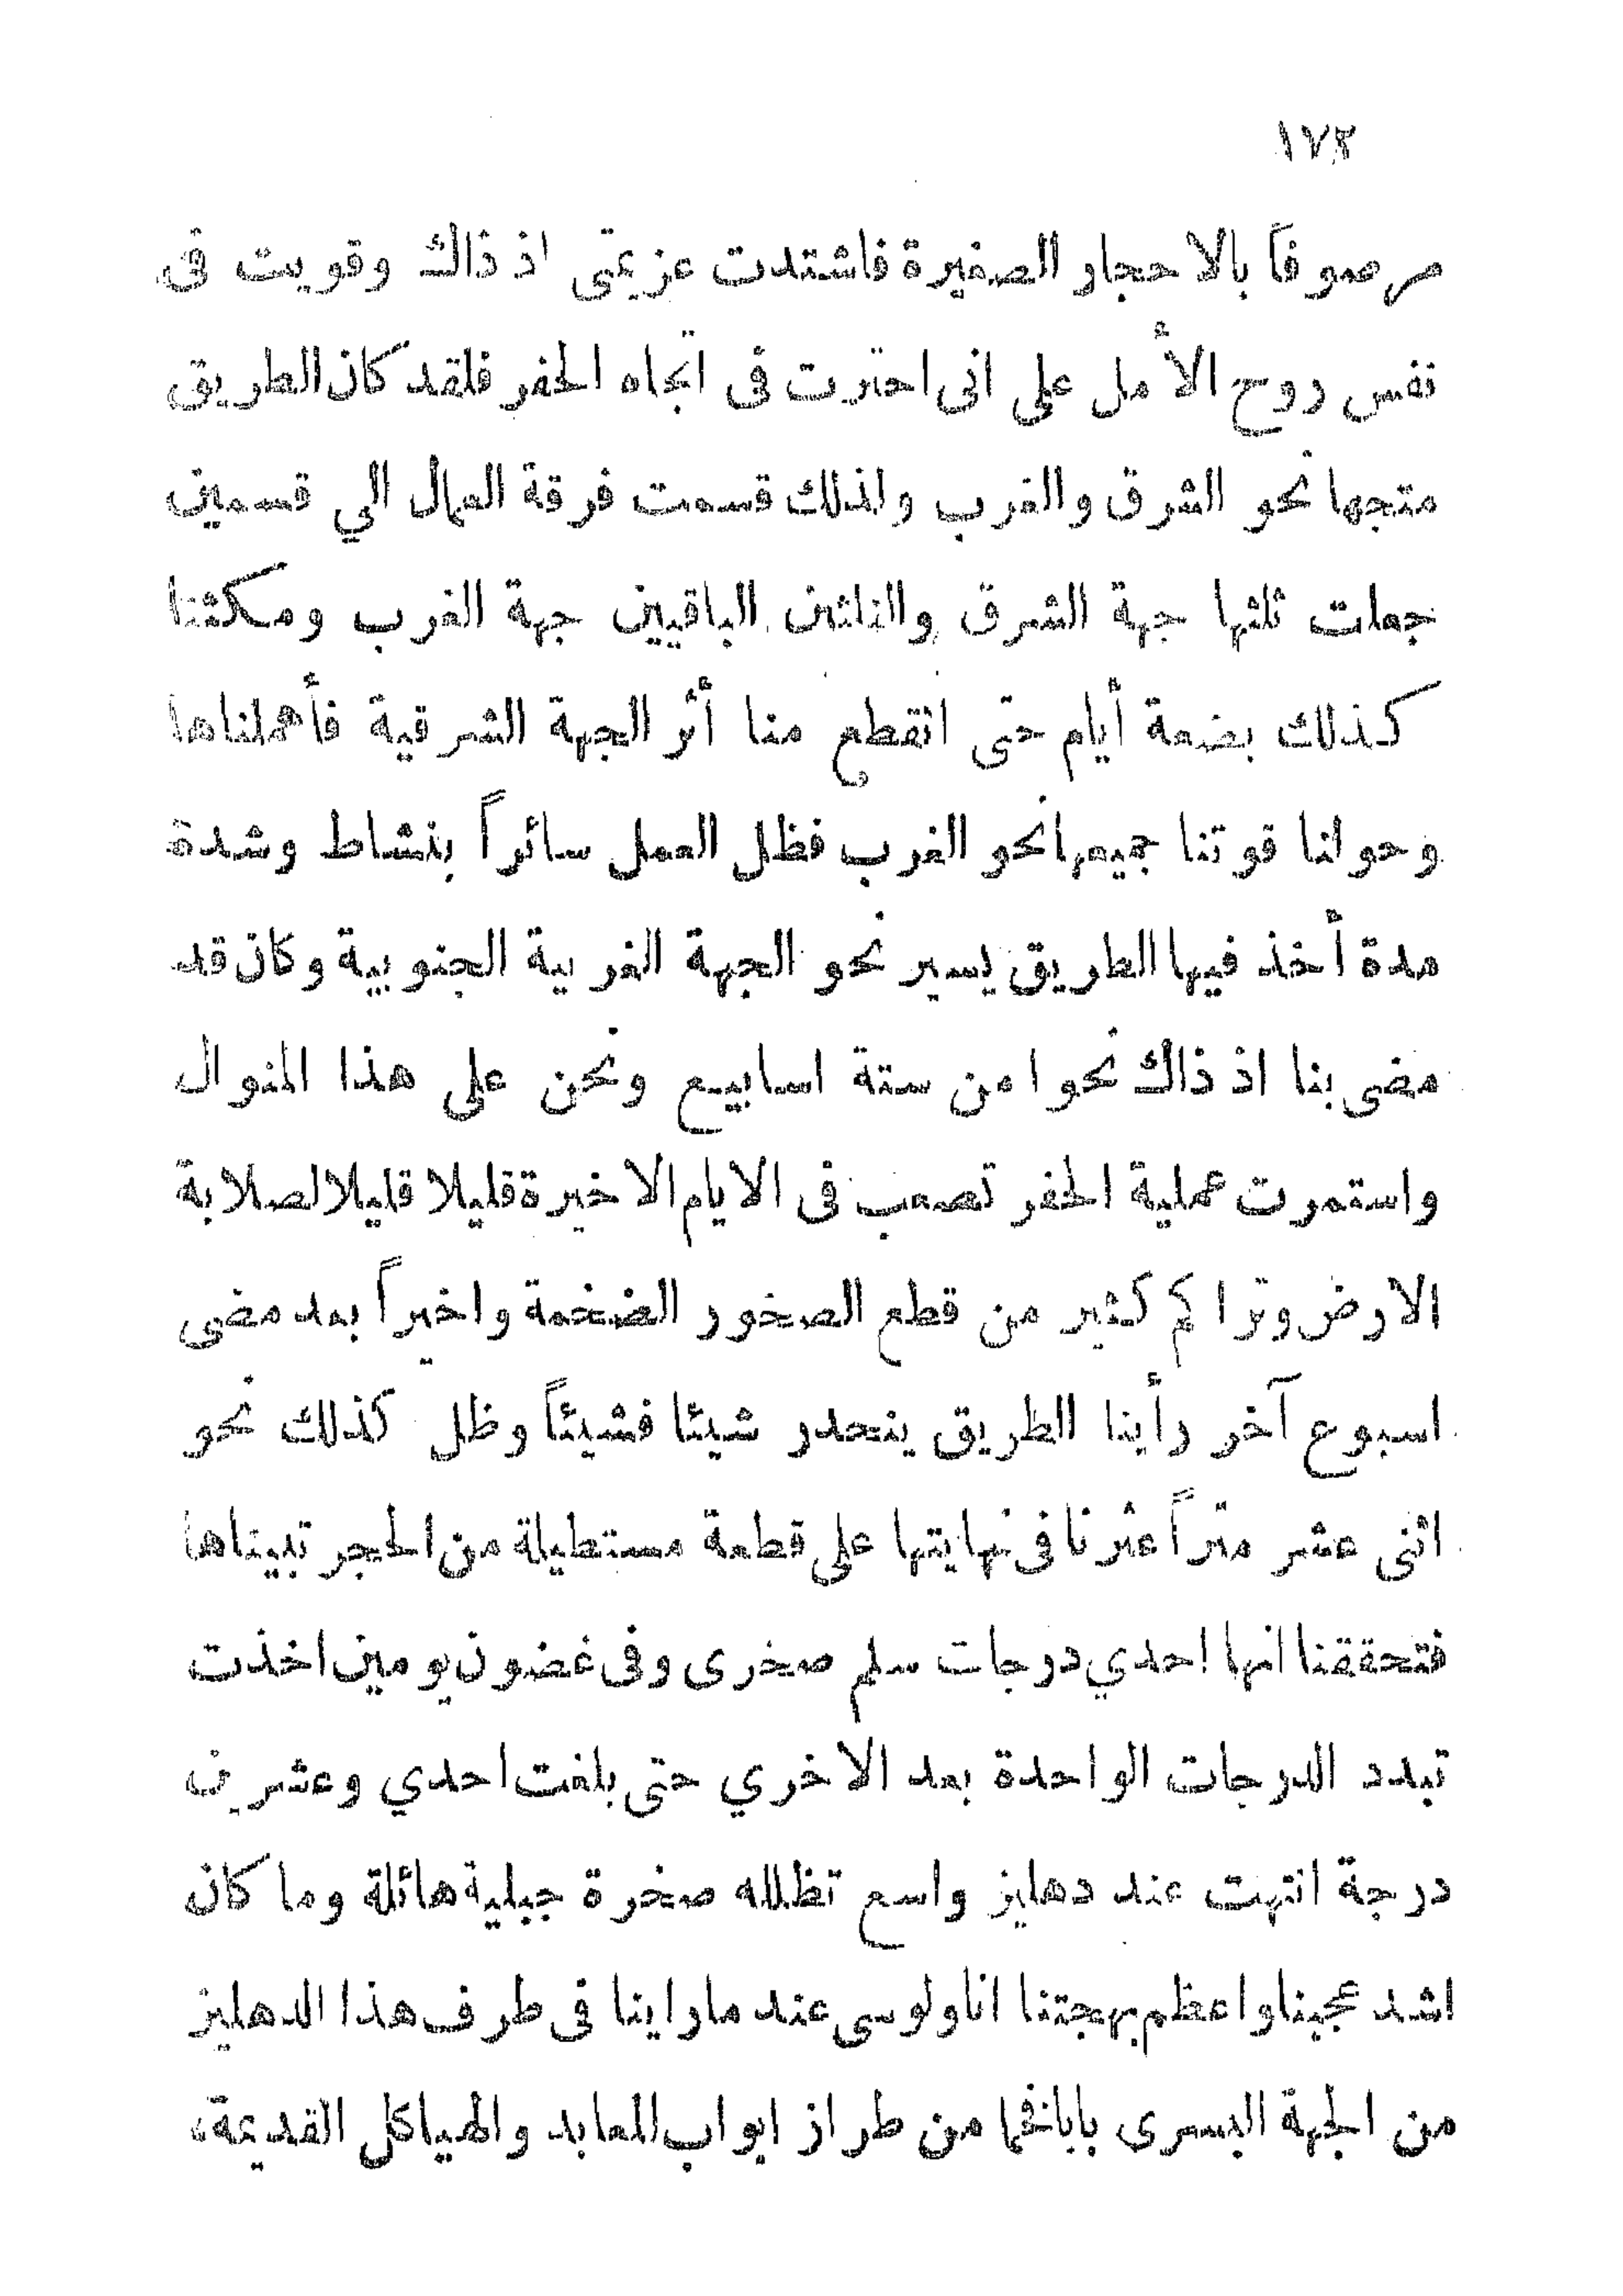 ١٧٢
مرصوفاً بالاحجار الصغيرة فاشتدت عزيمتى اذ ذاك وقويت فى
نفس روح الأمل على انى احترت فى اتجاه الحفر فلقد كان الطريق
متجها نحو الشرق والغرب ولذلك قسمت فرقة العمال الي قسمين
جعلت ثلثها جهة الشرق والثلثين الباقيين جهة الغرب ومكثنا
كذلك بضعة أيام حتى انقطع منا أثر الجهة الشرقية فأهملناها
وحولنا قوتنا جميعها نحو الغرب فظل العمل سائراً بنشاط وشدة
مدة أخذ فيها الطريق يسير نحو الجهة الغربية الجنوبية وكان قد
مضى بنا اذ ذاك نحوا من ستة اسابيع ونحن على هذا المنوال
واستمرت عملية الحفر تصعب فى الايام الاخيرة قليلا قليلا لصلابة
الارض وتراكم كثير من قطع الصخور الضخمة واخيراً بعد مضى
اسبوع آخر رأينا الطريق ينحدر شيئا فشيئاً وظل كذلك نحو
اثنى عشر متراً عثرنا فى نهايتها على قطعة مستطيلة من الحجر تبيناها
فتحققنا انها احدي درجات سلم صخرى وفى غضون يومين اخذت
تبدد الدرجات الواحدة بعد الاخري حتى بلغت احدي وعشرين
درجة انتهت عند دهليز واسع تظلله صخرة جبلية هائلة وما كان
اشد عجبنا واعظم بهجتنا انا ولوسى عند ما راينا فى طرف هذا الدهليز
من الجهة اليسرى بابا فخما من طراز ابواب المعابد والهياكل القديمة،